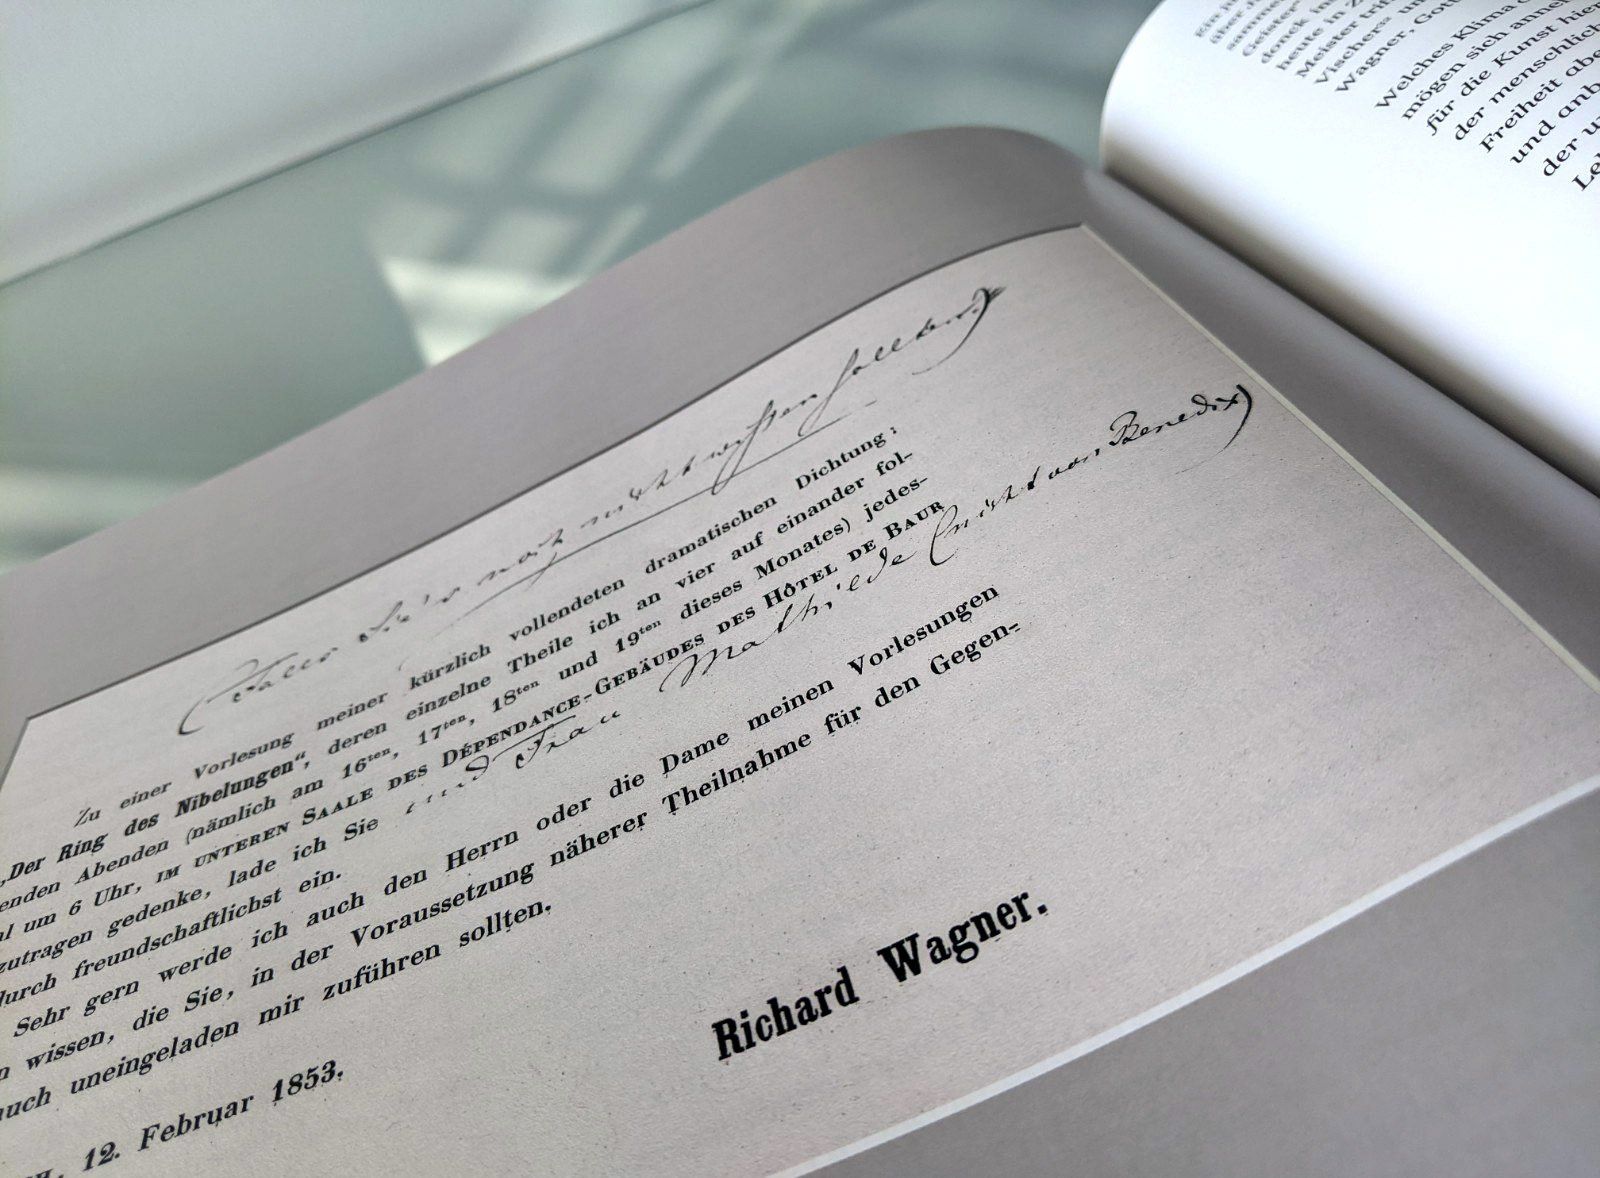 (Falls Sie's noch nicht wissen sollten.)
Zu einer Vorlesung meiner kürzlich vollendeten dramatischen Dichtung:
„Der Ring des Nibelungen“, deren einzelne Theile ich an vier auf einander fol-
enden Abenden (nämlich am 16ten, 17ten, 18ten und 19ten dieses Monates) jedes-
al um 6 Uhr, IM UNTEREN SAALE DES DÉPENDANCE-GEBÄUDES DES HÔTEL DE BAUR
zutragen gedenke, lade ich Sie und Frau Mathilde (nicht von Benedix)
durch freundschaftlichst ein.
Sehr gern werde ich auch den Herrn oder die Dame meinen Vorlesungen
n wissen, die Sie, in der Voraussetzung näherer Theilnahme für den Gegen-
auch uneingeladen mir zuführen sollten.
Richard Wagner.
H, 12. Februar 1853.
über
Geister
donck
heute in Z
Meister
Vischer» un
Wagner, Gott
Welches Klima
mögen sich anne
für die Kunst hier
der menschlich
Freiheit abe
und anb
der u
Le